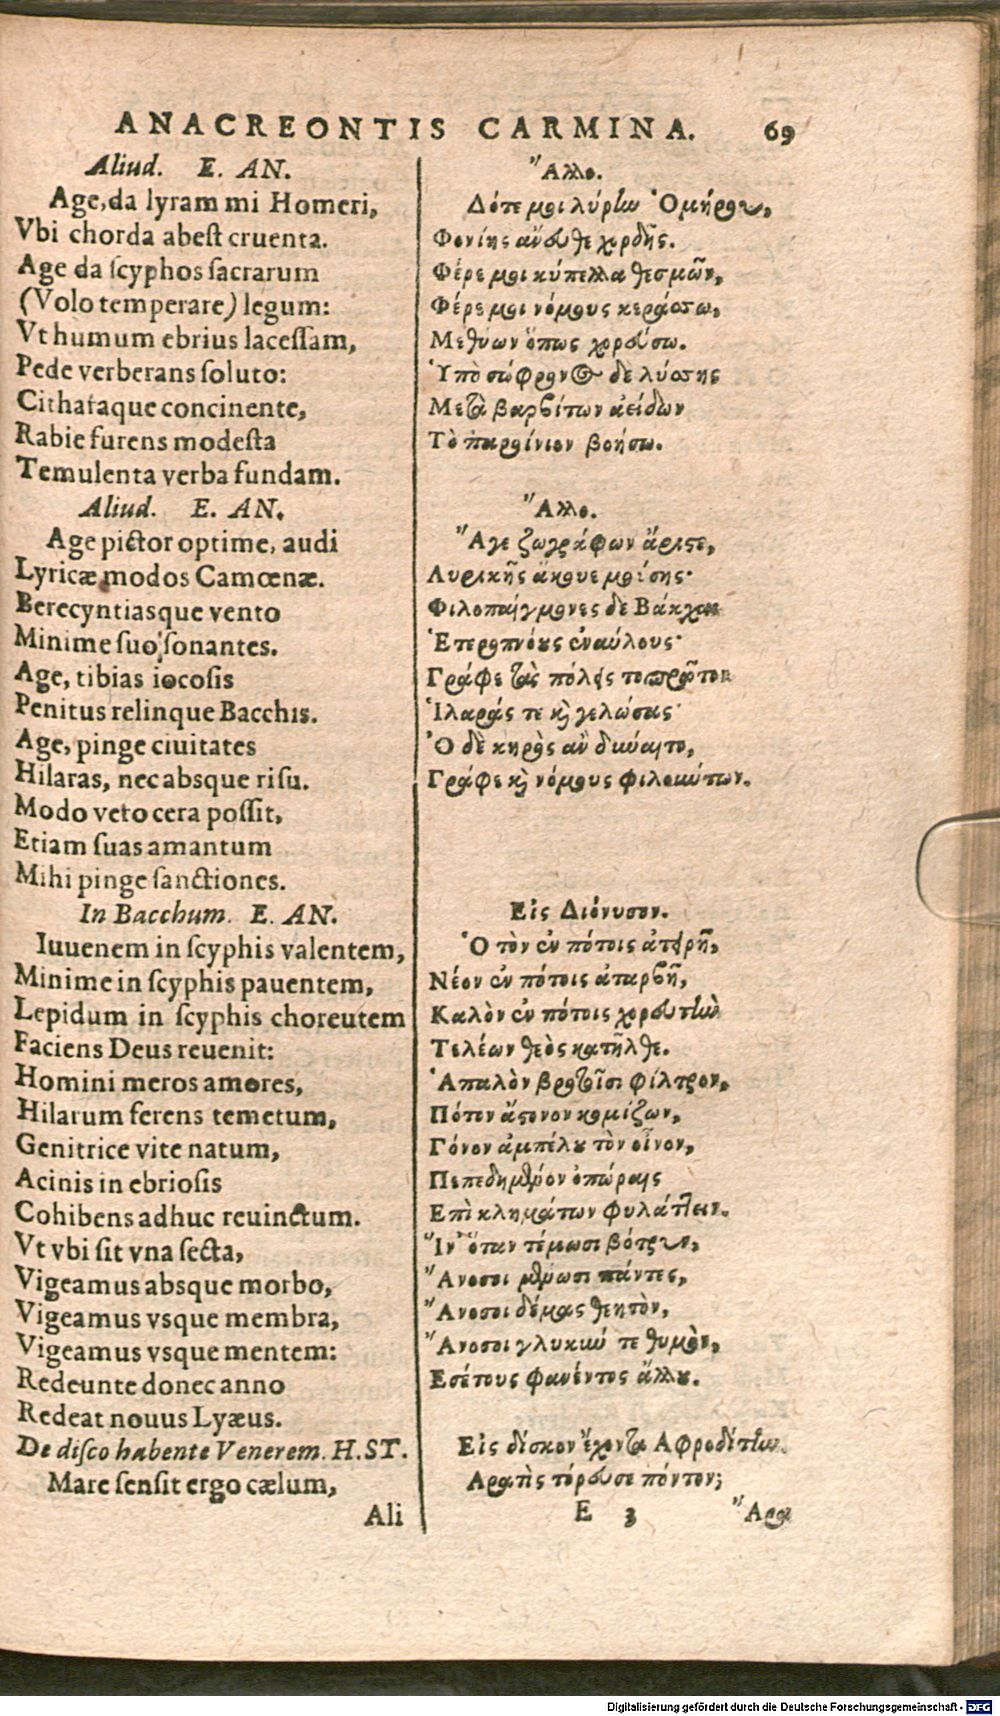 ANACREONTIS CARMINA. 69
Aliud. E. AN.
Age, da lyram mi Homeri,
Vbi chorda abest cruenta.
Age da scyphos sacrarum
(Volo temperare) legum:
Vt humum ebrius lacessam,
Pede verberans soluto:
Citharaque concinente,
Rabie furens modesta
Temulenta verba fundam.
Aliud. E. AN.
Age pictor optime, audi
Lyricæ modos Camœnæ.
Berecyntiasque vento
Minime suo sonantes.
Age, tibias iocosis
Penitus relinque Bacchis.
Age, pinge ciuitates
Hilaras, nec absque risu.
Modo veto cera possit,
Etiam suas amantum
Mihi pinge sanctiones.
In Bacchum. E. AN.
Iuuenem in scyphis valentem,
Minime in scyphis pauentem,
Lepidum in scyphis choreutem
Faciens Deus reuenit:
Homini meros amores,
Hilarum ferens temetum,
Genitrice vite natum,
Acinis in ebriosis
Cohibens adhuc reuinctum.
Vt vbi sit vna secta,
Vigeamus absque morbo,
Vigeamus vsque membra,
Vigeamus vsque mentem:
Redeunte donec anno
Redeat nouus Lyæus.
De disco habente Venerem. H. ST.
Mare sensit ergo cælum,
Ali
Ἄλλο.
Δότε μοι λύρην Ὁμήρου,
Φονίης ἄνευθε χορδῆς.
Φέρε μοι κύπελλα θεσμῶν,
Φέρε μοι νόμους κεράσσω,
Μεθύων ὅπως χορεύσω.
Ὑπὸ σώφρονος δὲ λύσσης
Μετὰ βαρβίτων ἀείδων
Τὸ παροίνιον βοήσω.
Ἄλλο.
Ἄγε ζωγράφων ἄριστε,
Λυρικῆς ἄκουε μούσης·
Φιλοπαίγμονες δὲ Βάκχαι
Ἑτεροπνόους ἐναύλους·
Γράφε τὰς πόλεις τοπρῶτον
Ἱλαράς τε καὶ γελώσας·
Ὁ δὲ κηρὸς ἂν δύναιτο,
Γράφε καὶ νόμους φιλούντων.
Εἰς Διόνυσον.
Ὁ τὸν ἐν πότοις ἀτειρῆ,
Νέον ἐν πότοις ἀταρβῆ,
Καλὸν ἐν πότοις χορευτὴν
Τελέων θεὸς κατῆλθε.
Ἁπαλὸν βροτοῖσι φίλτρον,
Πότον ἄστονον κομίζων,
Γόνον ἀμπέλου τὸν οἶνον,
Πεπεδημένον ὀπώραις
Επὶ κλημάτων φυλάττειν.
Ἵν᾽ ὅταν τέμωσι βότρυν,
Ἄνοσοι μένωσι πάντες,
Ἄνοσοι δέμας θεητὸν,
Ἄνοσοι γλυκύν τε θυμὸν,
Εσέτους φανέντος ἄλλου.
Εἰς δίσκον ἔχοντα Αφροδίτην.
Αρα τὶς τόρευσε πόντον;
E 3 Ἄρα